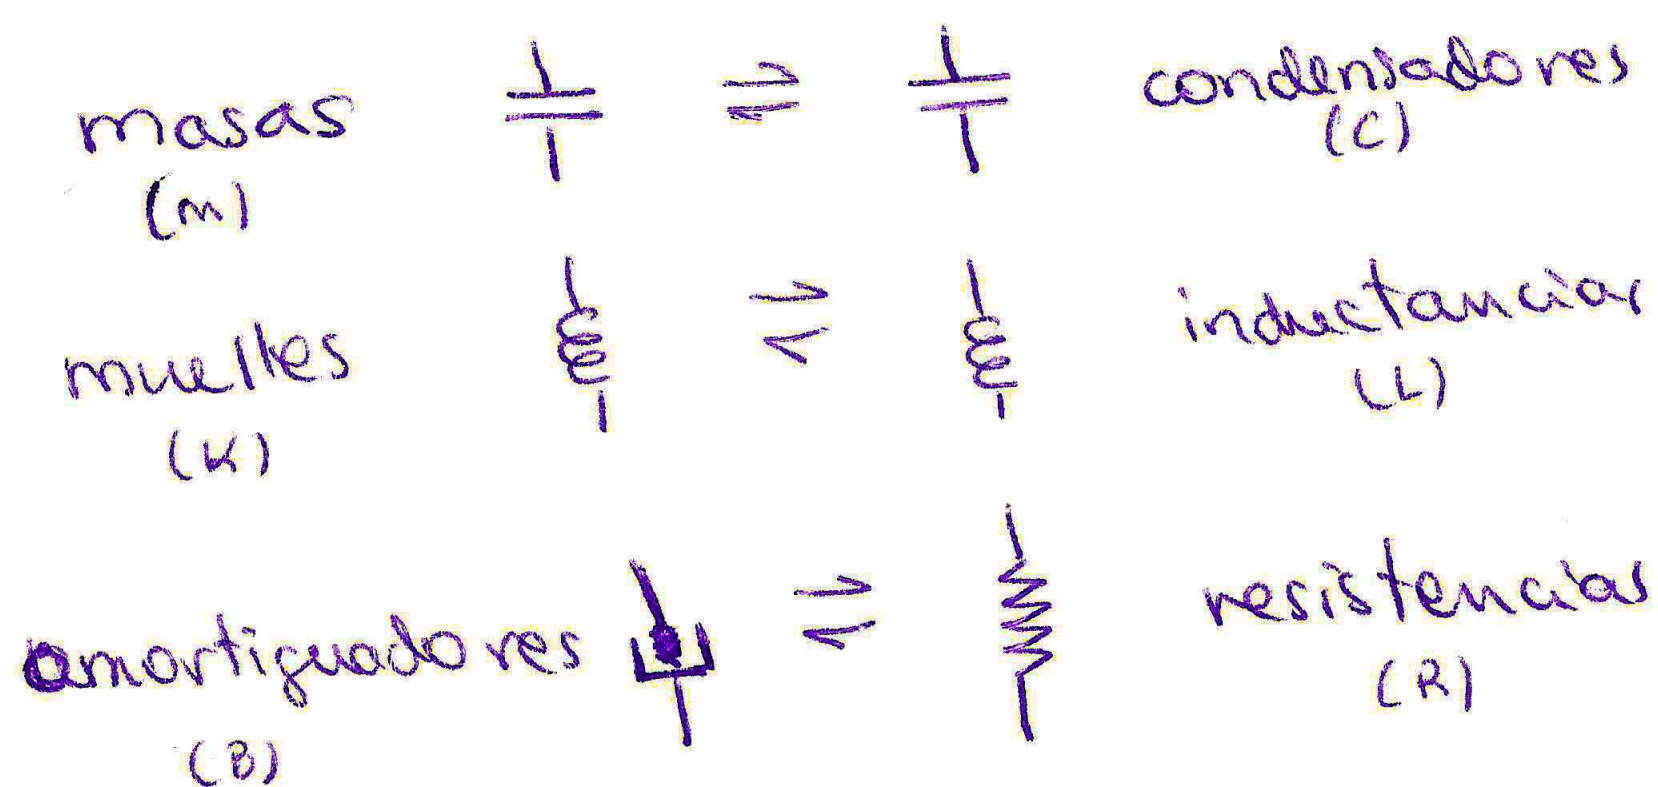 masas condensadores
(m) (C)
muelles inductancias
(K) (L)
amortiguadores resistencias
(B) (R)